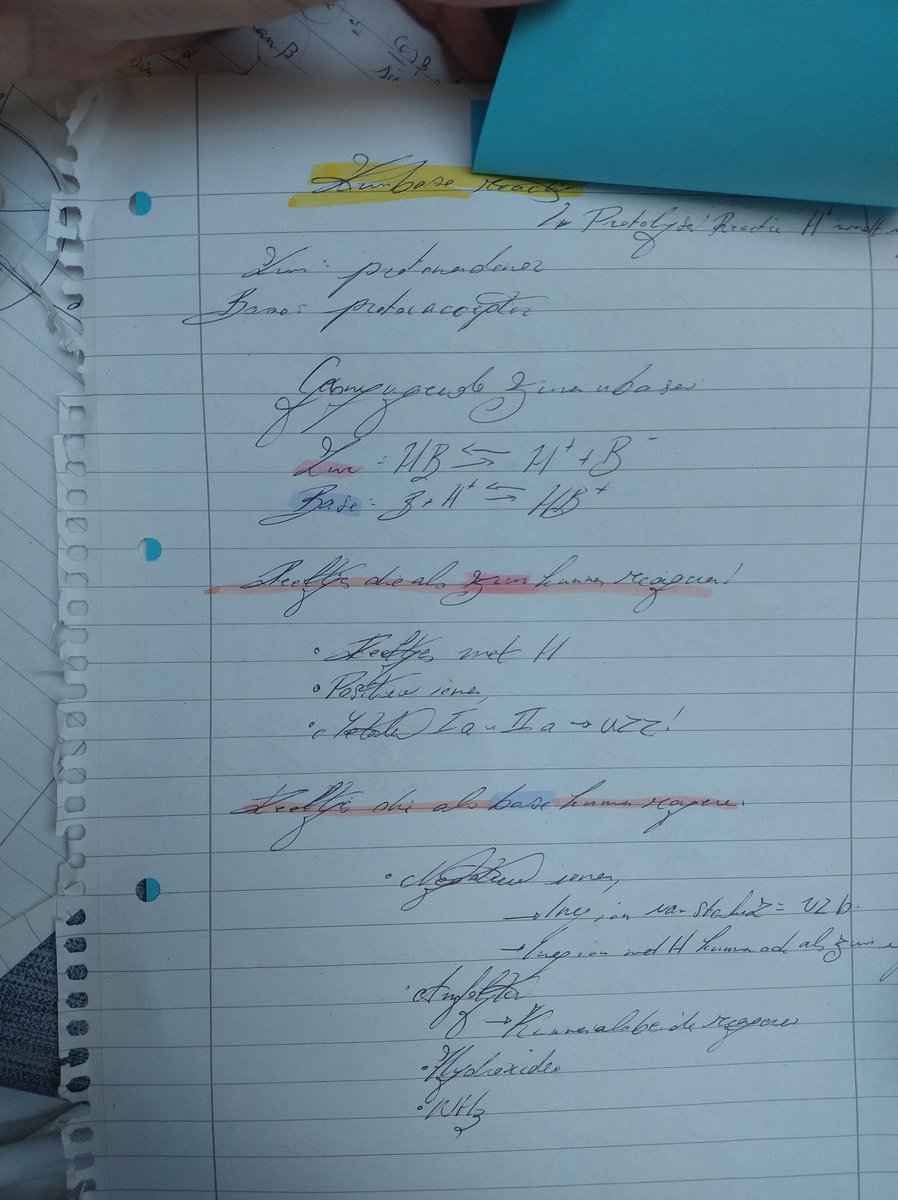 sin α
tan β
cos β
sin
Zuurbase reactie
↳ Protolyse: Reactie H⁺ wordt
Zuur: protondonor
Base: protonacceptor
Geconjugeerde zuren en basen
Zuur: HB ⇆ H⁺ + B⁻
Base: B + H⁺ ⇆ HB⁺
Deeltjes die als zuur kunnen reageren!
• Deeltjes met H
• Positieve ionen
• Ia IIa → UZZ!
Deeltjes die als base kunnen reageren.
• Negatieve ionen,
→ ion van sterk Z = UZb.
→ ion met H kunnen ook als zuur
• Amfolyten
→ Kunnen als beide reageren
• Hydroxiden
• NH₃